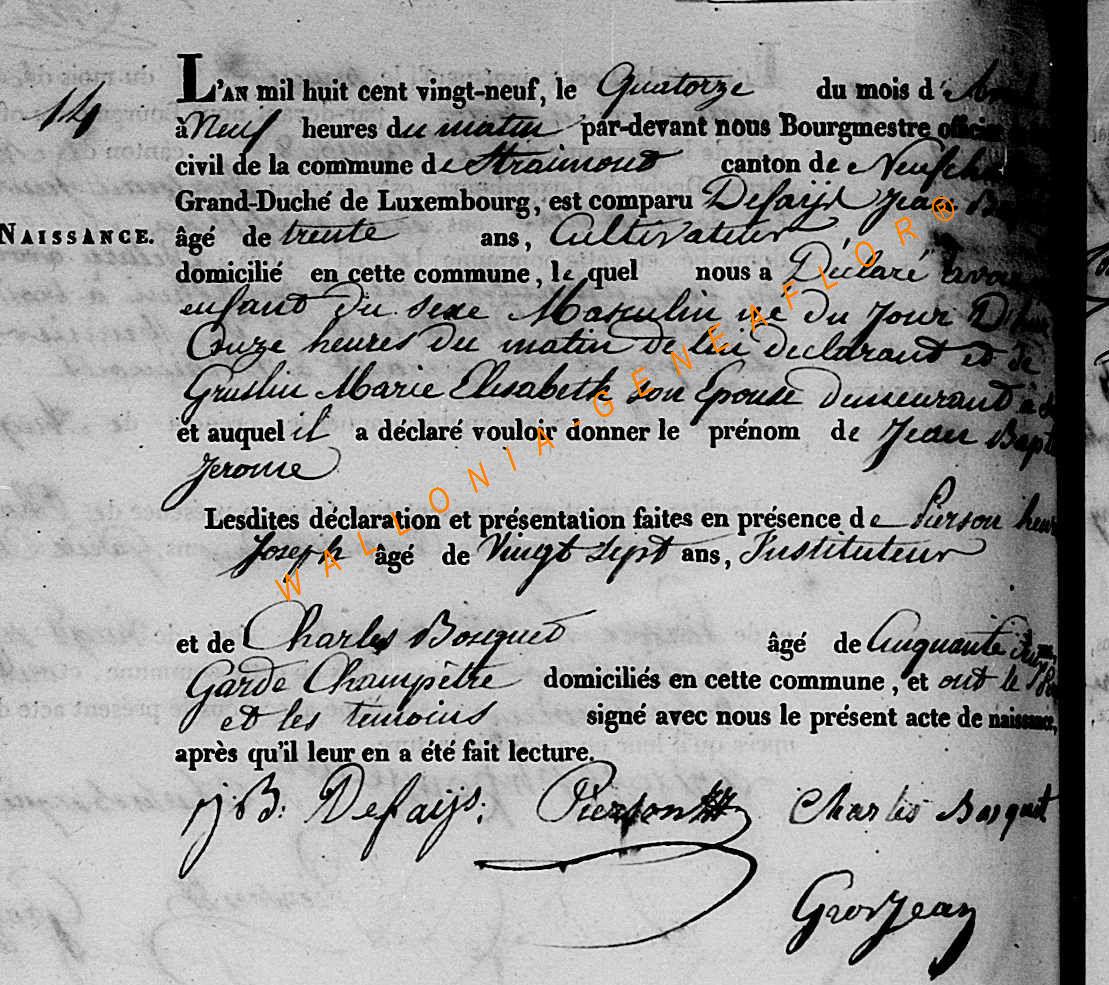 L'AN mil huit cent vingt-neuf, le Quatorze du mois d'
14
à Neuf heures du matin par-devant nous Bourgmestre officier
civil de la commune de Straimont canton de Neufcha
Grand-Duché de Luxembourg, est comparu Defaijs Jean
NAISSANCE. âgé de trente ans, Cultivateur
domicilié en cette commune, le quel nous a Déclaré avoir
enfant du sexe Masculin né du Jour D'hier
Onze heures du matin de lui declarant et de
Gruslin Marie Elisabeth son Epouse demeurant à
et auquel il a déclaré vouloir donner le prénom de Jean Bapt
Jerome
Lesdites déclaration et présentation faites en présence de Pierson henri
Joseph âgé de Vingt sept ans, Instituteur
et de Charles Bosquet âgé de Cinquante
Garde Champêtre domiciliés en cette commune, et ont le
et les temoins signé avec nous le présent acte de naissance,
après qu'il leur en a été fait lecture.
J B: Defaijs: Pierson Charles Bosquet
Grosjean
WALLONIA-GENEAFLOR®